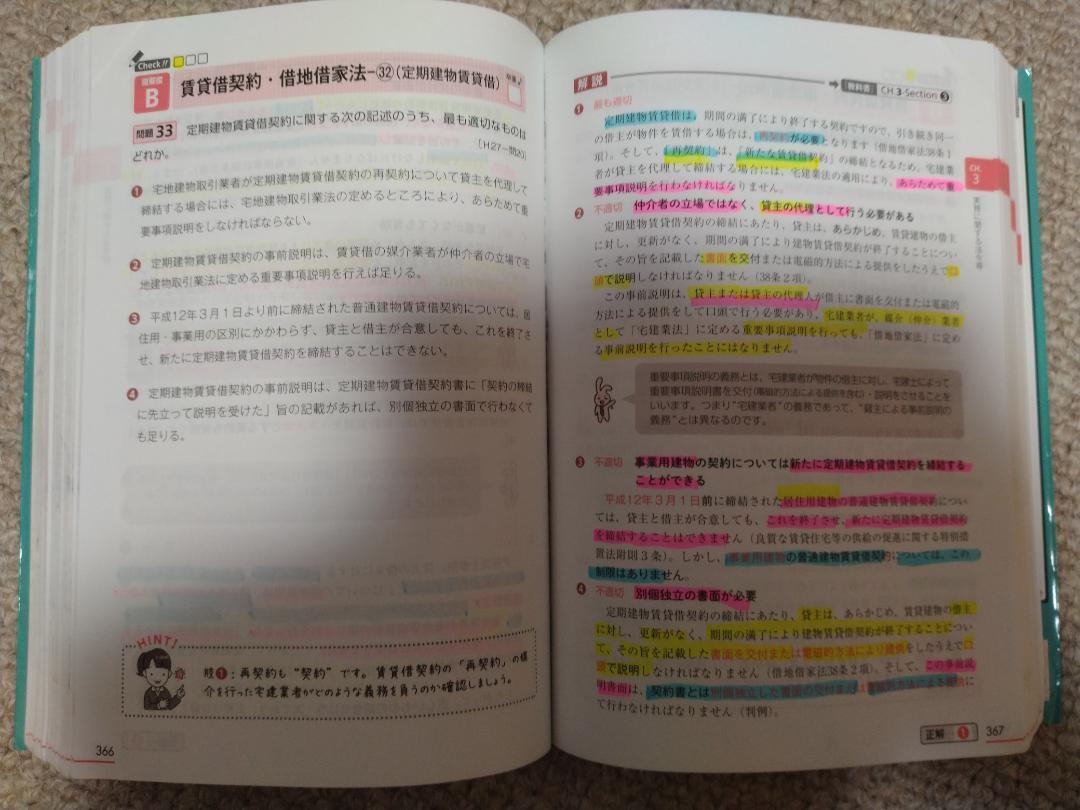 Check!!
重要度
B
賃貸借契約・借地借家法-㉜(定期建物賃貸借)
問題 33 定期建物賃貸借契約に関する次の記述のうち、最も適切なものは
どれか。
〔H27-問20〕
❶ 宅地建物取引業者が定期建物賃貸借契約の再契約について貸主を代理して
締結する場合には、宅地建物取引業法の定めるところにより、あらためて重
要事項説明をしなければならない。
❷ 定期建物賃貸借契約の事前説明は、賃貸借の媒介業者が仲介者の立場で宅
地建物取引業法に定める重要事項説明を行えば足りる。
❸ 平成12年3月1日より前に締結された普通建物賃貸借契約については、居
住用・事業用の区別にかかわらず、貸主と借主が合意しても、これを終了さ
せ、新たに定期建物賃貸借契約を締結することはできない。
❹ 定期建物賃貸借契約の事前説明は、定期建物賃貸借契約書に「契約の締結
に先立って説明を受けた」旨の記載があれば、別個独立の書面で行わなくて
も足りる。
HINT!
肢❶:再契約も“契約”です。賃貸借契約の「再契約」の媒
介を行った宅建業者がどのような義務を負うのか確認しましょう。
366
解説
教科書 CH 3 Section ❸
❶ 最も適切
定期建物賃貸借は、期間の満了により終了する契約ですので、引き続き同一
の借主が物件を賃借する場合は、再契約が必要となります(借地借家法38条1
項)。そして、「再契約」は、「新たな賃貸借契約」の締結となるため、宅建業
者が貸主を代理して締結する場合には、宅建業法の適用により、あらためて重
要事項説明を行わなければなりません。
❷ 不適切 仲介者の立場ではなく、貸主の代理として行う必要がある
定期建物賃貸借契約の締結にあたり、貸主は、あらかじめ、賃貸建物の借主
に対し、更新がなく、期間の満了により建物賃貸借契約が終了することについ
て、その旨を記載した書面を交付または電磁的方法による提供をしたうえで口
頭で説明しなければなりません(38条2項)。
この事前説明は、貸主または貸主の代理人が借主に書面を交付または電磁的
方法による提供をして口頭で行う必要があり、宅建業者が、媒介(仲介)業者
として「宅建業法」に定める重要事項説明を行っても、「借地借家法」に定め
る事前説明を行ったことにはなりません。
重要事項説明の義務とは、宅建業者が物件の借主に対し、宅建士によって
重要事項説明書を交付(電磁的方法による提供を含む)・説明をさせることを
いいます。つまり“宅建業者”の義務であって、“貸主による事前説明の
義務”とは異なるのです。
❸ 不適切 事業用建物の契約については新たに定期建物賃貸借契約を締結する
ことができる
平成12年3月1日前に締結された居住用建物の普通建物賃貸借契約につい
ては、貸主と借主が合意しても、これを終了させ、新たに定期建物賃貸借契約
を締結することはできません(良質な賃貸住宅等の供給の促進に関する特別措
置法附則3条)。しかし、事業用建物の普通建物賃貸借契約については、この
制限はありません。
❹ 不適切 別個独立の書面が必要
定期建物賃貸借契約の締結にあたり、貸主は、あらかじめ、賃貸建物の借主
に対し、更新がなく、期間の満了により建物賃貸借契約が終了することについ
て、その旨を記載した書面を交付または電磁的方法により提供をしたうえで口
頭で説明しなければなりません(借地借家法38条2項)。そして、この事前説
明書面は、契約書とは別個独立した書面の交付または電磁的方法による提供に
て行わなければなりません(判例)。
CH.
3
実務に関する法令等
正解 ❶
367